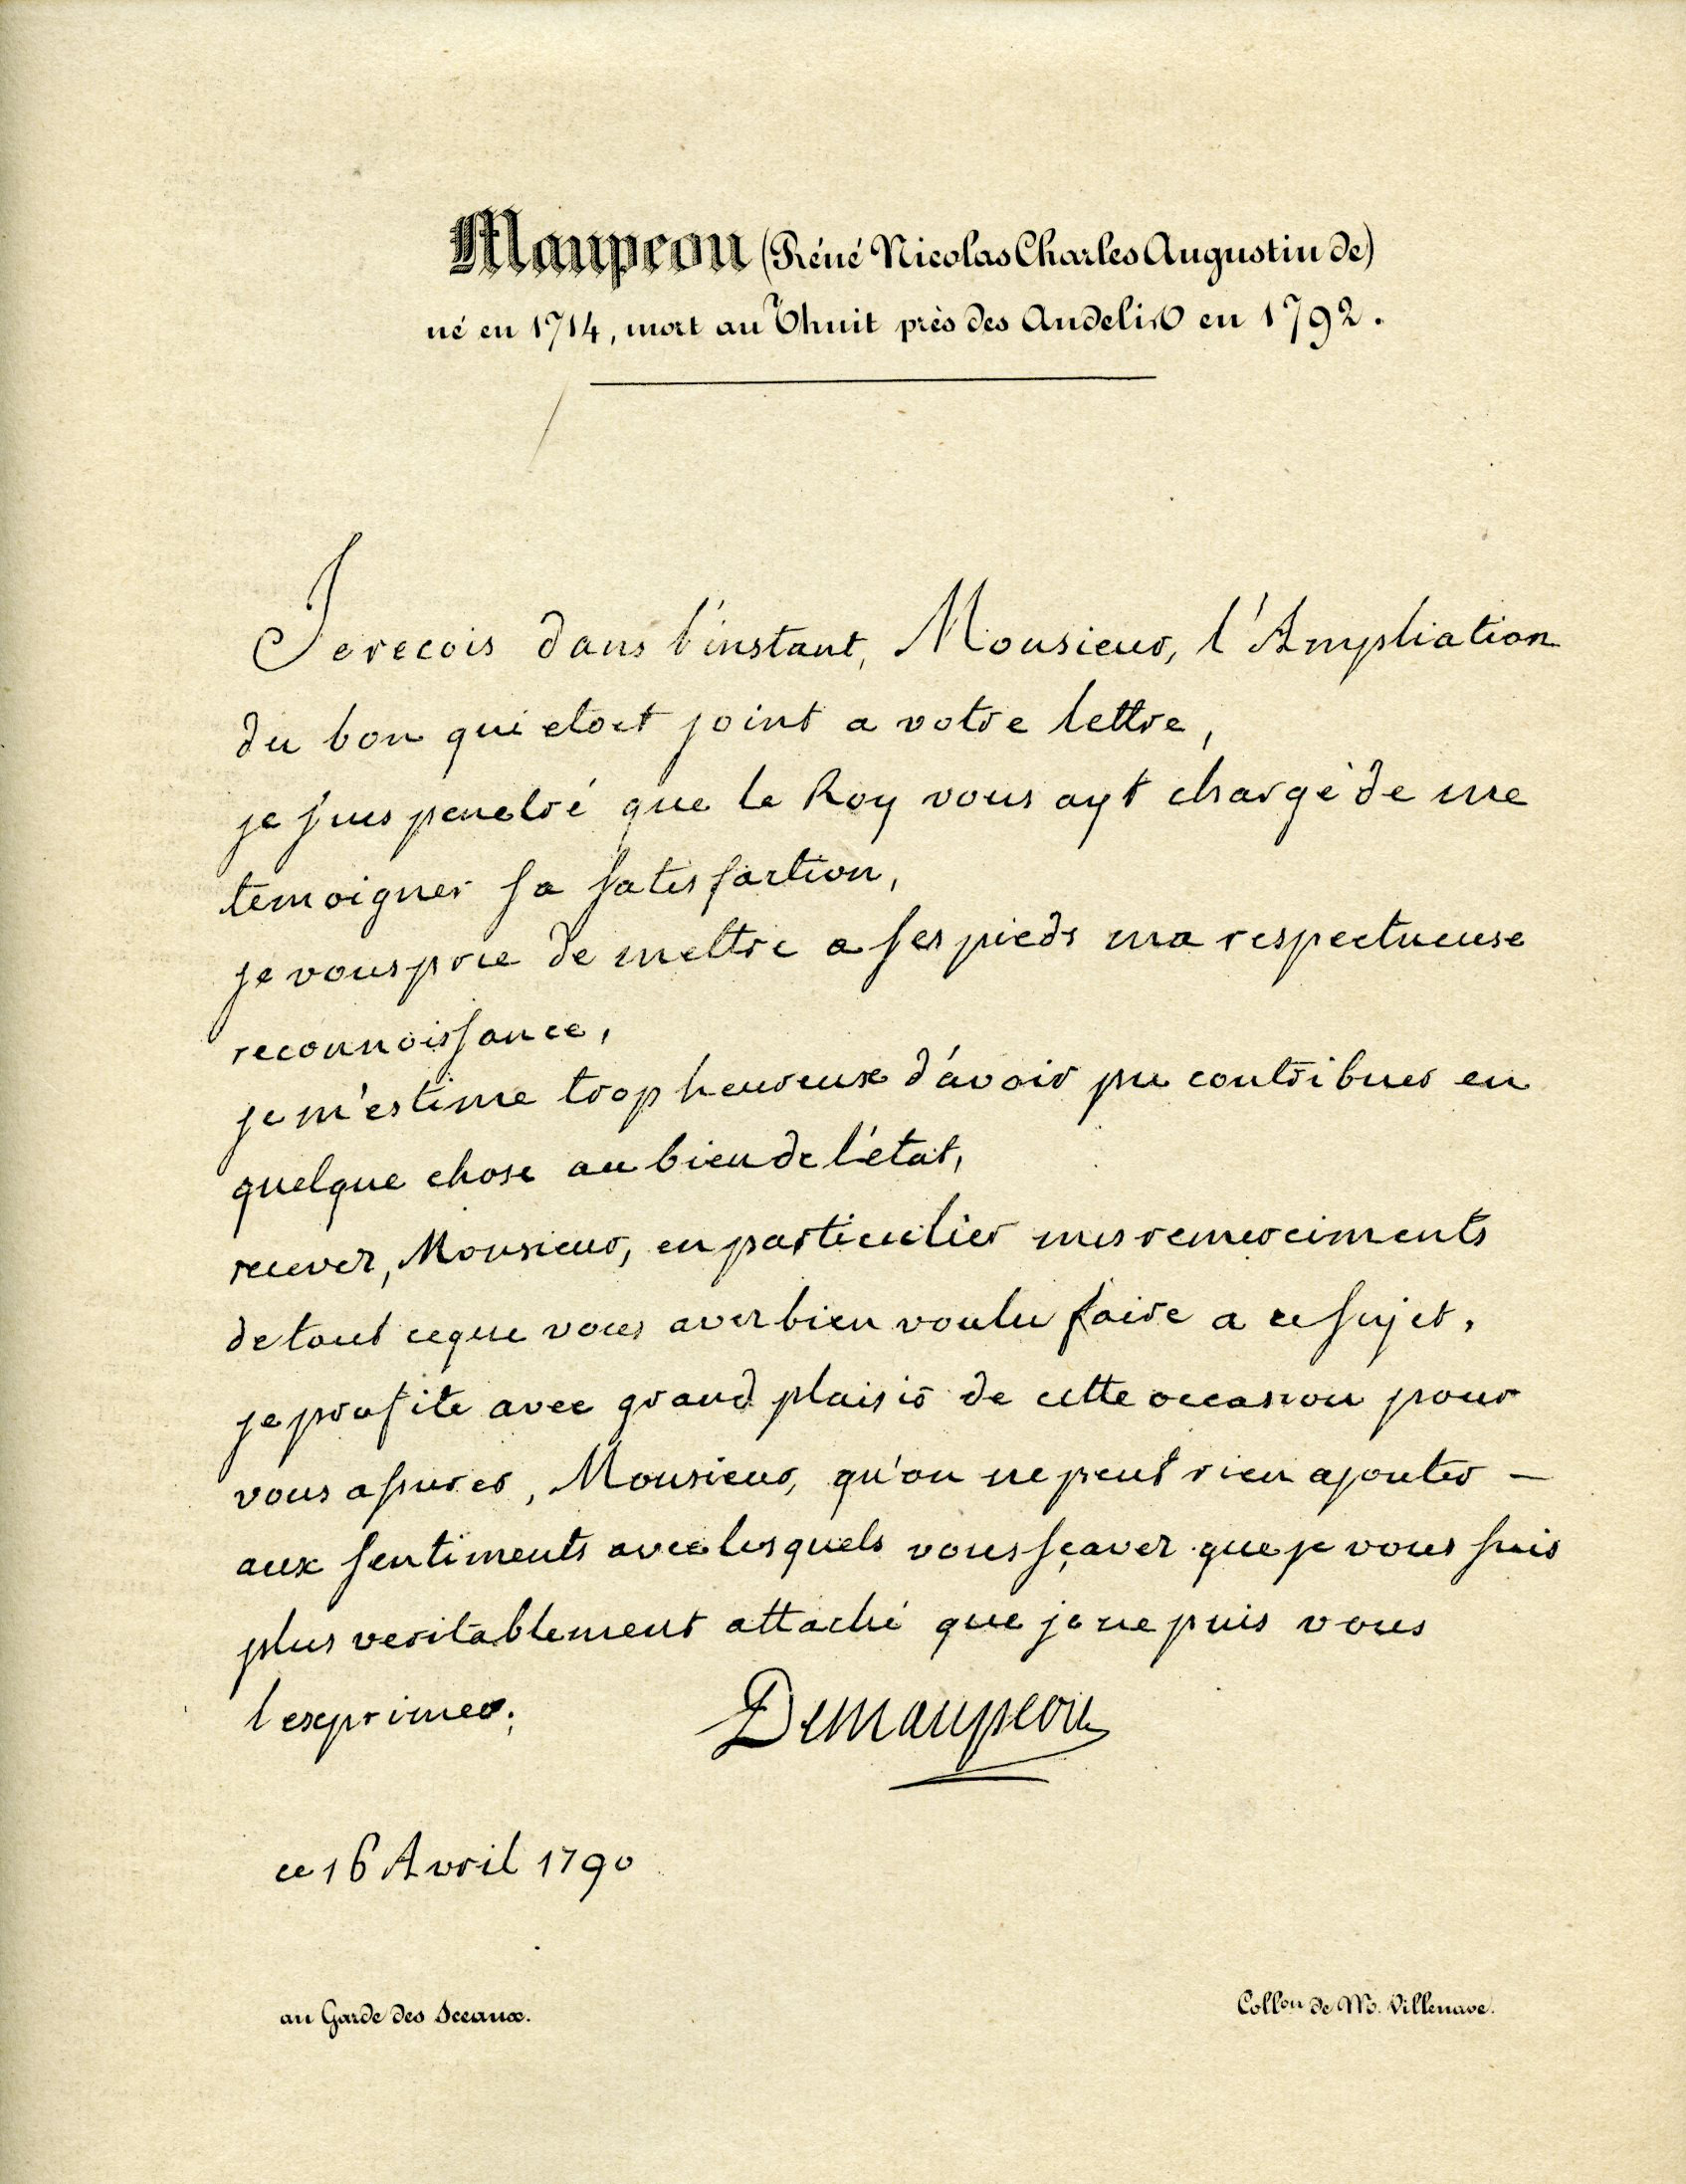 Maupeou (Réné Nicolas Charles Augustin de)
né en 1714, mort au Thuit près des Andelis en 1792.
Je recois dans l'instant, Monsieur, l'Ampliation
du bon qui etoit joint a votre lettre,
je suis penetré que le Roy vous ayt chargé de me
temoigner sa satisfaction,
je vous prie de mettre a ses pieds ma respectueuse
reconnoissance,
je m'estime trop heureux d'avoir pu contribuer en
quelque chose au bien de l'état,
recevez, Monsieur, en particulier mes remerciments
de tout ce que vous avez bien voulu faire a ce sujet,
je profite avec grand plaisir de cette occasion pour
vous assurer, Monsieur, qu'on ne peut rien ajouter –
aux sentiments avec lesquels vous sçavez que je vous suis
plus veritablement attaché que je ne puis vous
lexprimer.
Demaupeou
ce 16 Avril 1790
au Garde des Sceaux.
Collon de Mr. Villenave.